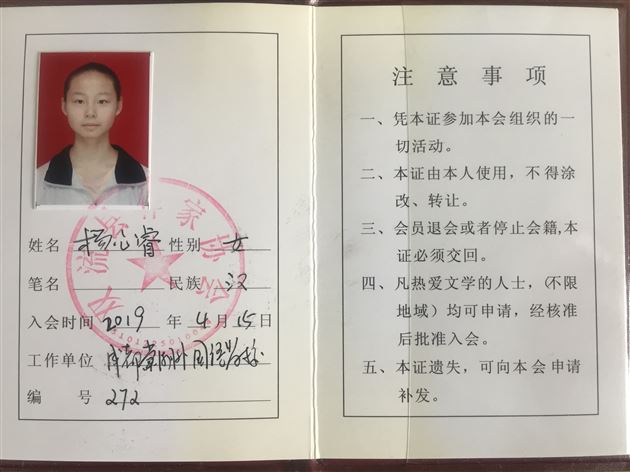 姓名 杨心睿 性别 女
笔名 民族 汉
入会时间 2019 年 4 月 15 日
工作单位 成都棠湖外国语学校
编 号 272
双流区作家协会
注 意 事 项
一、凭本证参加本会组织的一
切活动。
二、本证由本人使用，不得涂
改、转让。
三、会员退会或者停止会籍,本
证必须交回。
四、凡热爱文学的人士，(不限
地域）均可申请，经核准
后批准入会。
五、本证遗失，可向本会申请
补发。